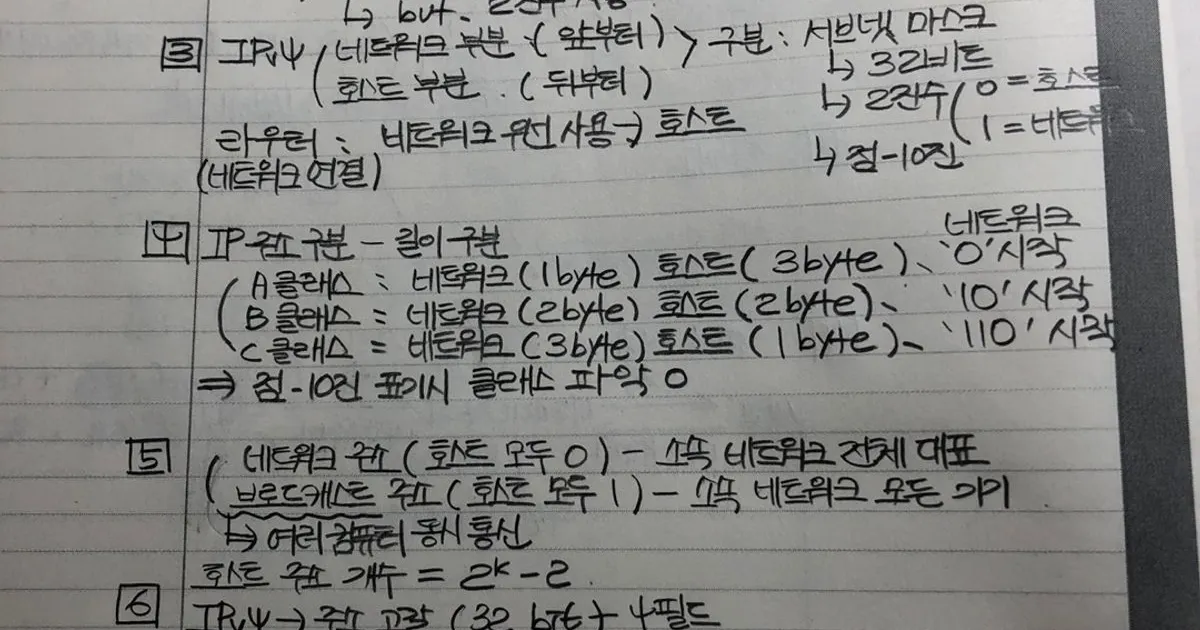 ↳ but. 2진수 사용
3 IPv4 ( 네트워크 부분 · ( 앞부터 ) > 구분 : 서브넷 마스크
호스트 부분 . ( 뒤부터 )
↳ 32비트
↳ 2진수 ( 0 = 호스트
1 = 네트워
↳ 점-10진
라우터 : 네트워크 우선 사용 → 호스트
(네트워크 연결)
4 IP 주소 구분 - 길이 구분
네트워크
A클래스 : 네트워크 (1byte) 호스트 ( 3byte )、 '0' 시작
B클래스 = 네트워크 (2byte) 호스트 (2byte)、 '10' 시작
C클래스 = 네트워크 (3byte) 호스트 ( 1byte )、 '110' 시작
⇒ 점-10진 표기시 클래스 파악 O
5 네트워크 주소 ( 호스트 모두 0 ) - 소속 네트워크 전체 대표
브로드캐스트 주소 ( 호스트 모두 1 ) - 소속 네트워크 모든 기기
↳ 여러 컴퓨터 동시 통신
호스트 주소 개수 = 2ᵏ - 2 .
6 IPv4 → 주소 고갈 (32 bit + 4필드